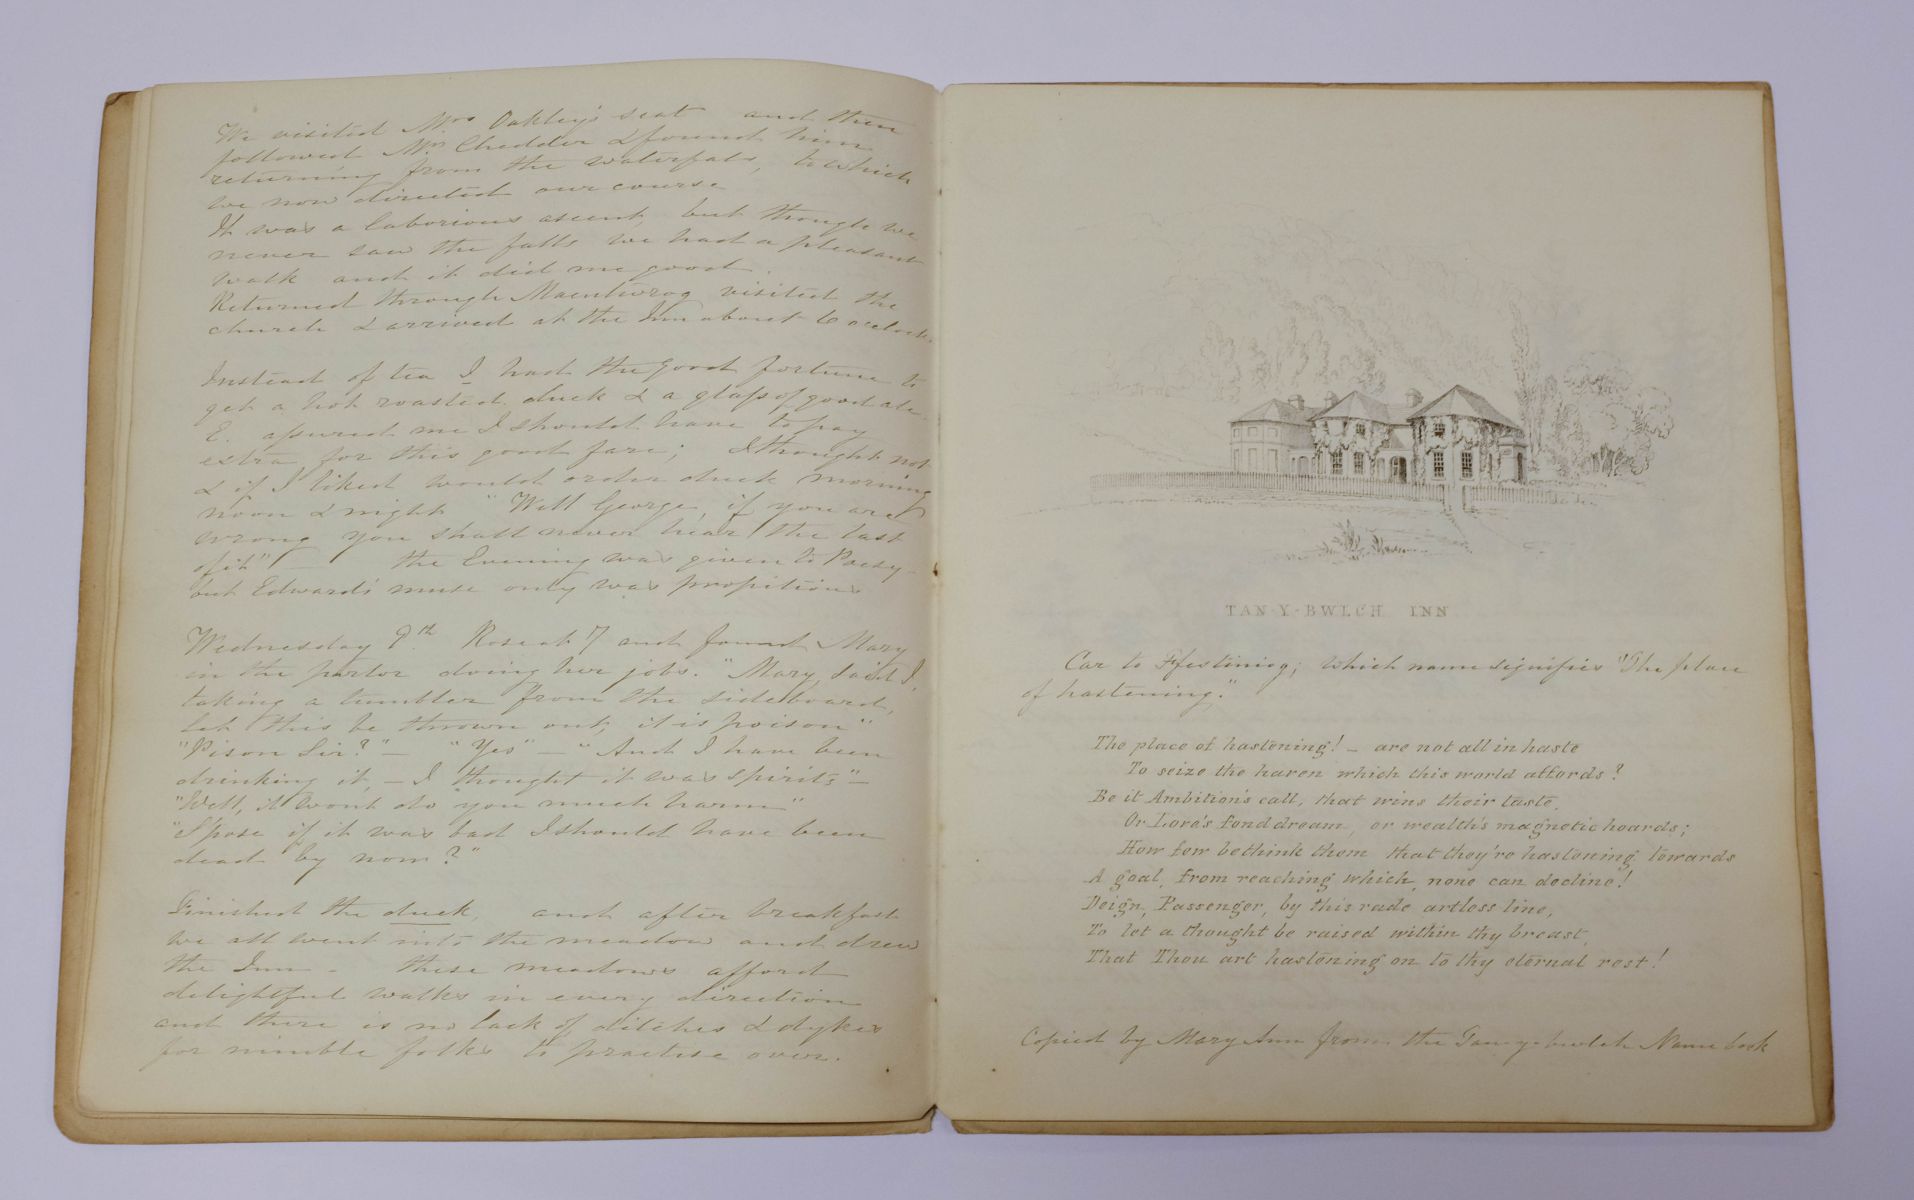 We visited Mrs Oakley's seat and then
followed Mr Chedder & found him
returning from the waterfals, to which
we now directed our course
It was a laborious ascent, but though we
never saw the falls we had a pleasant
walk and it did me good.
Returned through Maentwrog visited the
church & arrived at the Inn about 6 o'clock.
Instead of tea I had the good fortune to
get a hot roasted duck & a glass of good ale.
E. assured me I should have to pay
extra for this good fare; I thought not
& if I liked would order duck morning
noon & night "Well George, if you are
wrong you shall never hear the last
of it" — the Evening was given to Poesy —
but Edward's muse only was propitious
Wednesday 9th. Rose at 7 and found Mary
in the parlor doing her jobs. "Mary, said I,
taking a tumbler from the sideboard,
let this be thrown out, it is poison"
"Pison Sir?" — "Yes" — "And I have been
drinking it, — I thought it was spirits" —
"Well, it wont do you much harm"
"S'pose if it was bad I should have been
dead by now?"
Finished the duck, and after breakfast
we all went into the meadow and drew
the Inn — these meadows afford
delightful walks in every direction
and there is no lack of ditches & dykes
for nimble folks to practise over.
TAN-Y-BWLCH INN
Car to Ffestiniog; which name signifies "The place
of hastening."
The place of hastening! — are not all in haste
To seize the haven which this world affords?
Be it Ambition's call, that wins their taste,
Or Love's fond dream, or wealth's magnetic hoards;
How few bethink them that they're hastening towards
A goal, from reaching which, none can decline!
Deign, Passenger, by this rude artless line,
To let a thought be raised within thy breast,
That Thou art hastening on to thy eternal rest!
Copied by Mary Ann from the Tan-y-bwlch Name book